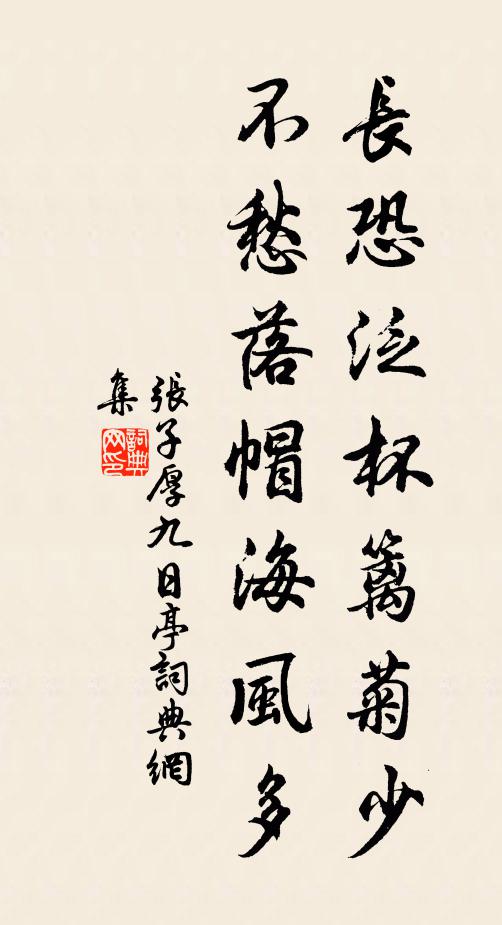 長恐泛杯篱菊少
不愁落帽海風多
張子厚九日亭詞典網
集
詞典网印